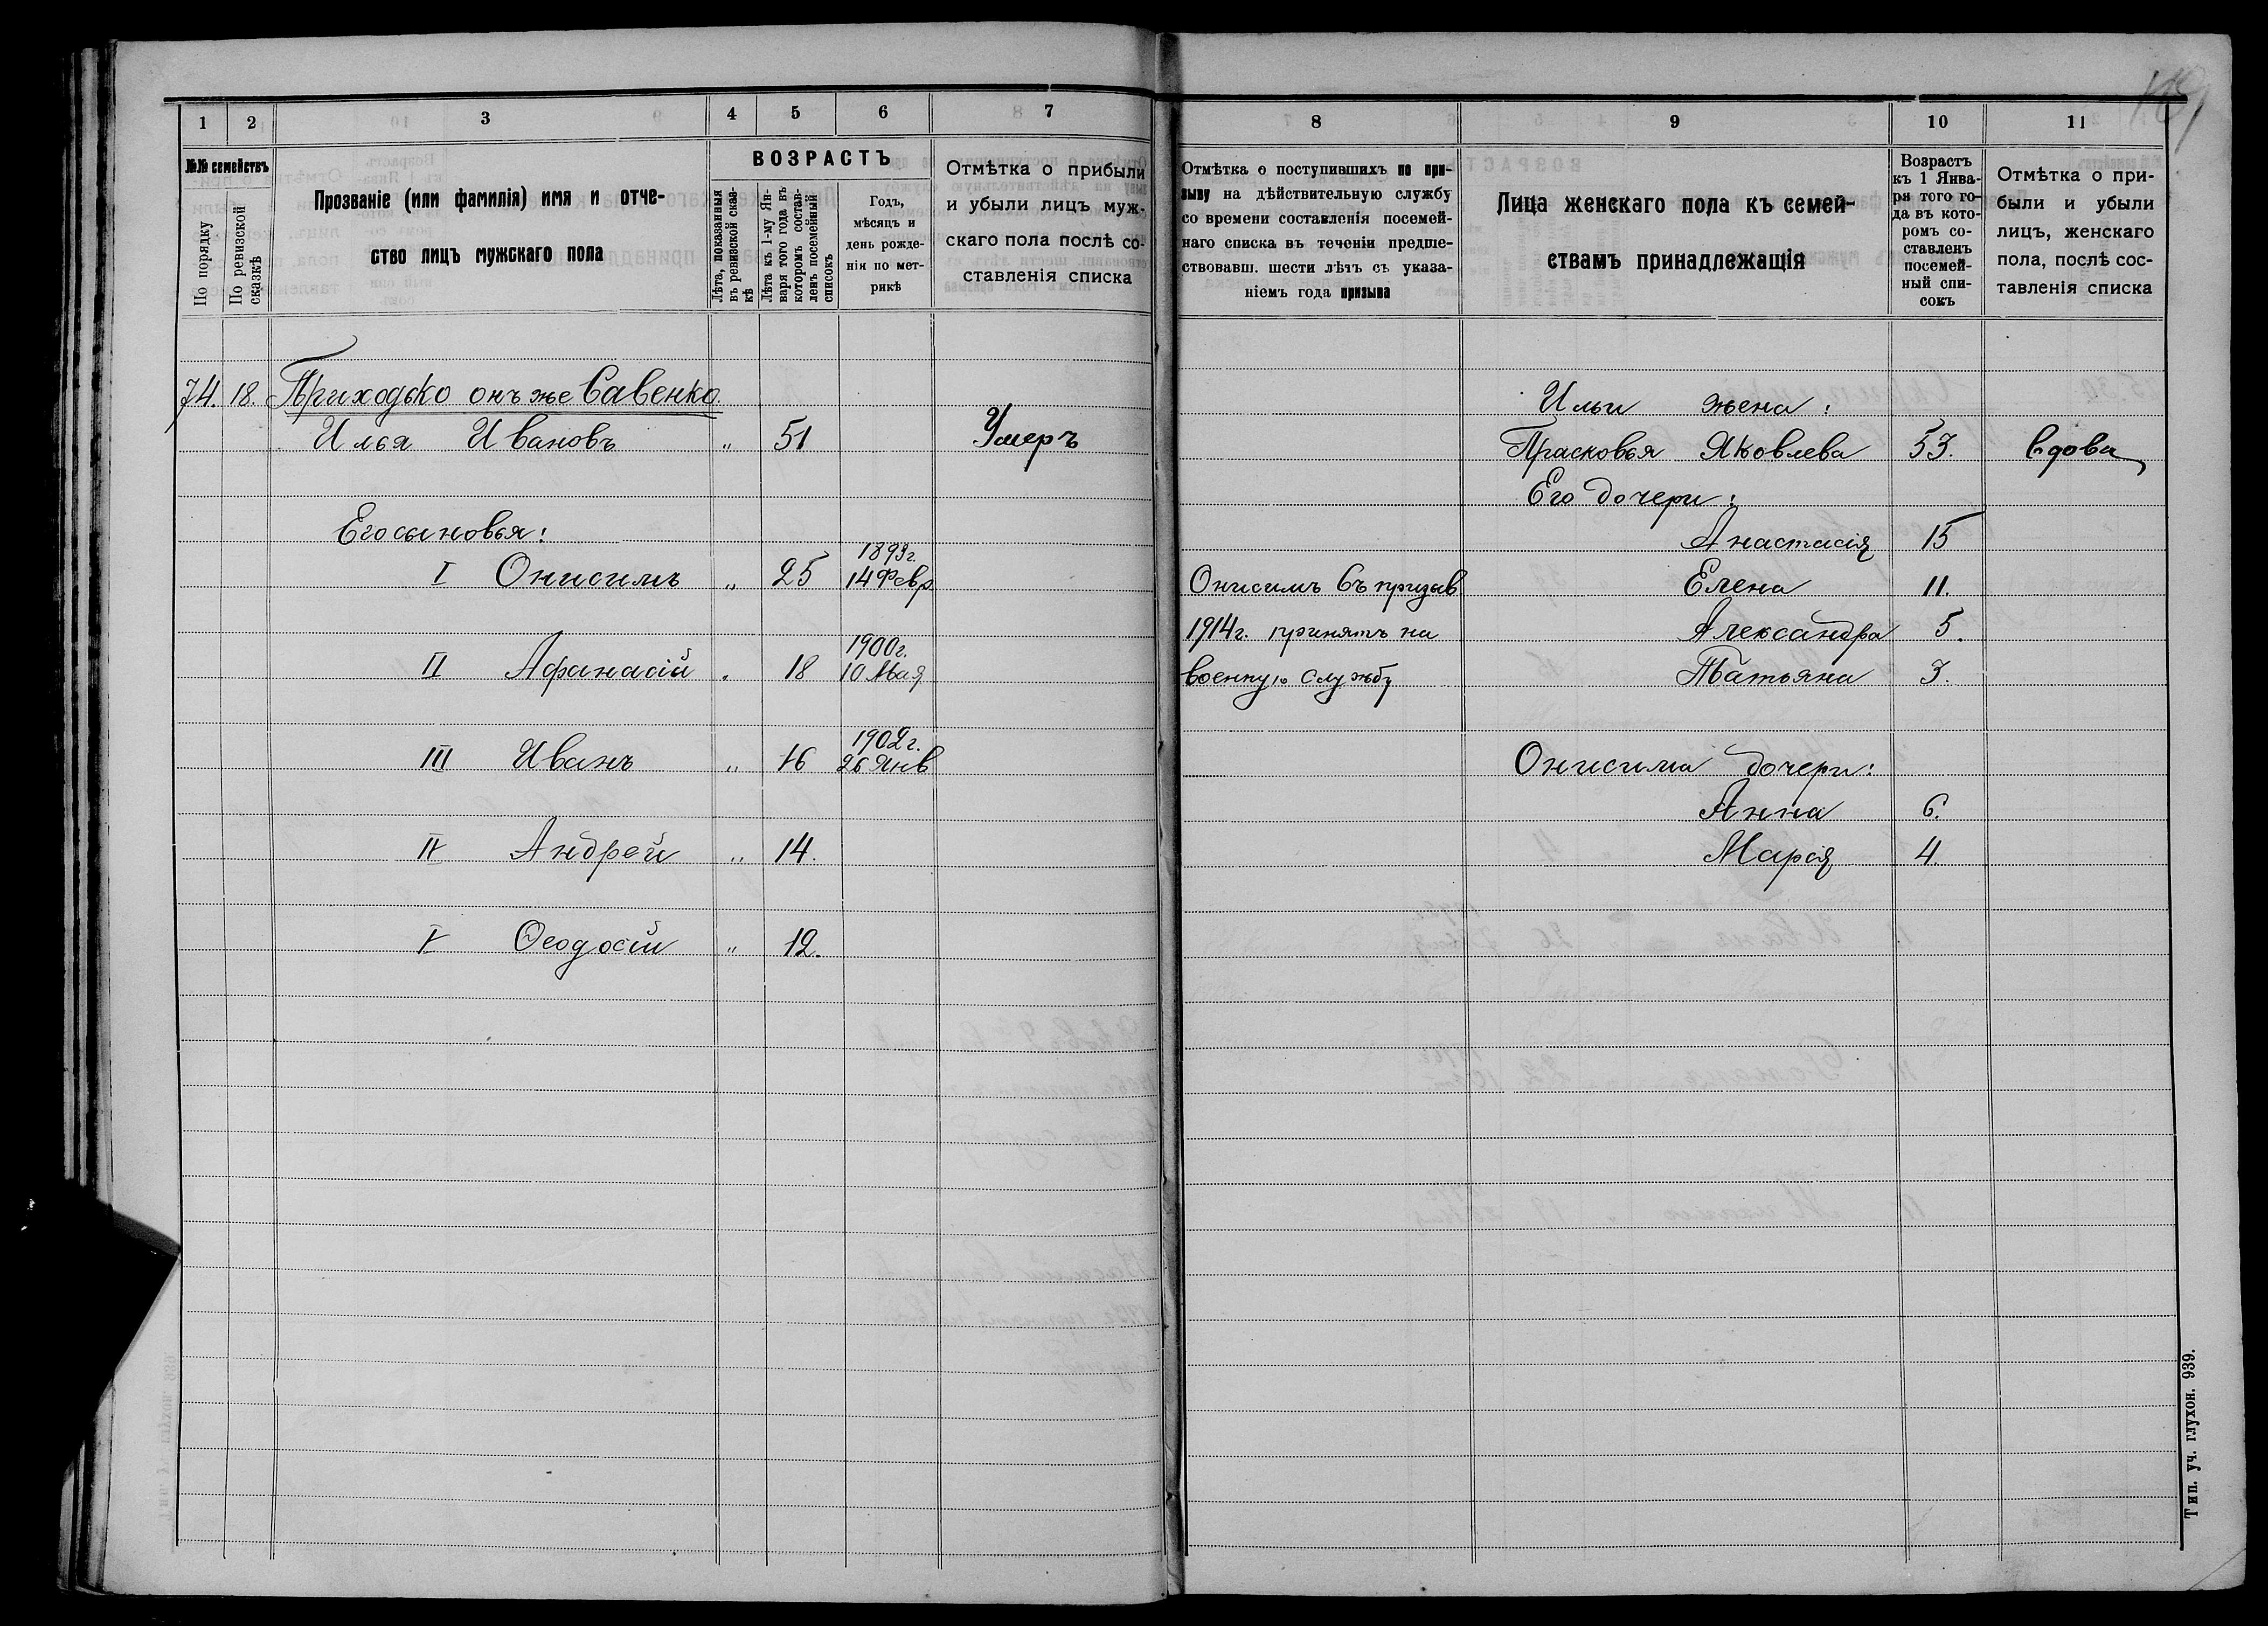 1 2 3 4 5 6 7
№№ семействъ
По порядку
По ревизской сказкѣ
Прозваніе (или фамилія) имя и отче-
ство лицъ мужскаго пола
ВОЗРАСТЪ
Лѣта, показанныя
въ ревизской сказ-
кѣ
Лѣта къ 1-му Ян-
варя того года въ
которомъ состав-
ленъ посемейный
списокъ
Годъ,
мѣсяцъ и
день рожде-
нія по мет-
рикѣ
Отмѣтка о прибыли
и убыли лицъ муж-
скаго пола послѣ со-
ставленія списка
74. 18. Приходько онъ же Савенко.
Илья Ивановъ „ 51 Умеръ
Его сыновья:
1893г.
I Онисимъ „ 25 14 Февр.
1900г.
II Афанасій „ 18 10 Мая
1902г.
III Иванъ „ 16 26 Янв
IV Андрей „ 14.
V Ѳеодосій „ 12.
8 9 10 11
Отмѣтка о поступившихъ по при-
зыву на дѣйствительную службу
со времени составленія посемей-
наго списка въ теченіи предше-
ствовавш. шести лѣтъ съ указа-
ніемъ года призыва
Лица женскаго пола къ семей-
ствамъ принадлежащія
Возрастъ
къ 1 Янва-
ря того го-
да въ кото-
ромъ со-
ставленъ
посемей-
ный спи-
сокъ
Отмѣтка о при-
были и убыли
лицъ, женскаго
пола, послѣ сос-
тавленія списка
Ильи жена:
Прасковья Яковлева 53. Вдова
Его дочери:
Анастасія 15
Онисимъ въ призыв Елена 11.
1914г. принятъ на Александра 5.
военную службу Татьяна 3.
Онисима дочери:
Анна 6.
Марія 4.
Тип. уч. глухон. 939.